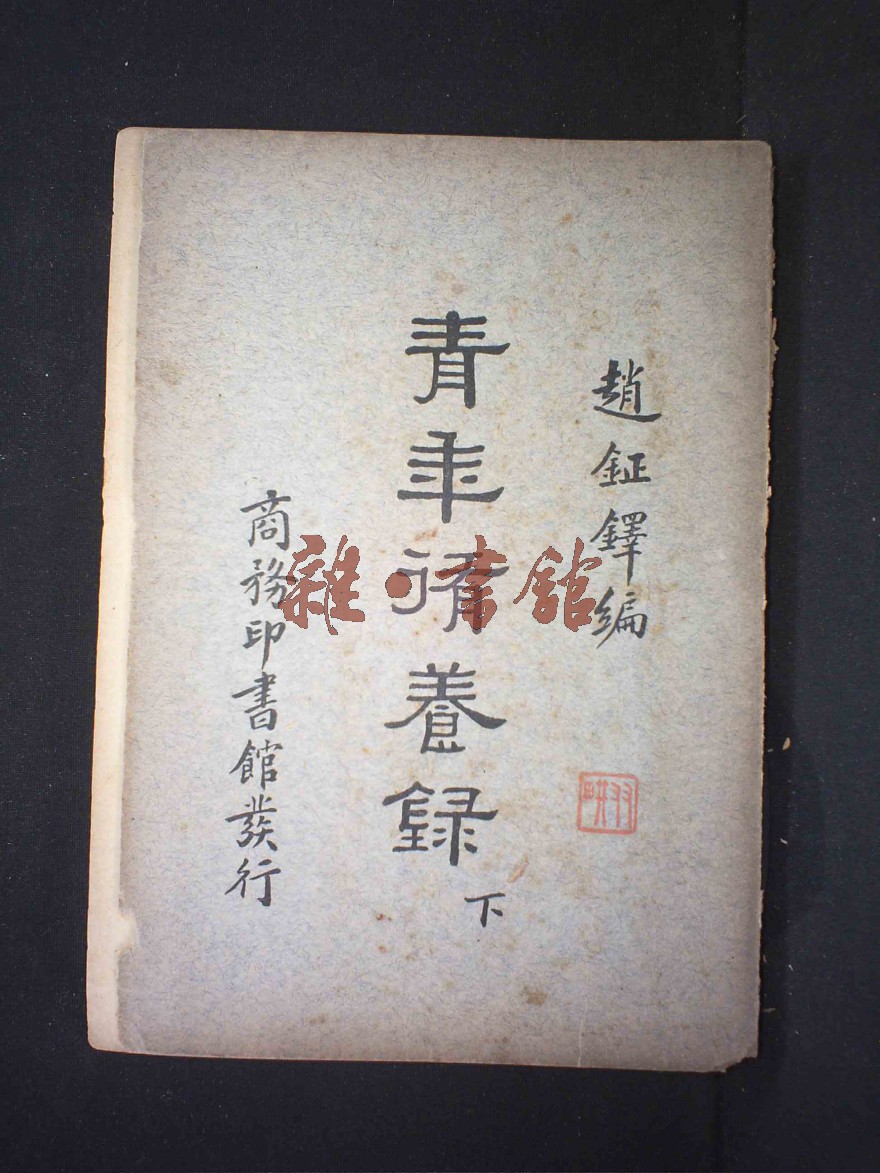 趙鉦鐸編
青年脩養錄
下
商務印書館發行
雜·書館